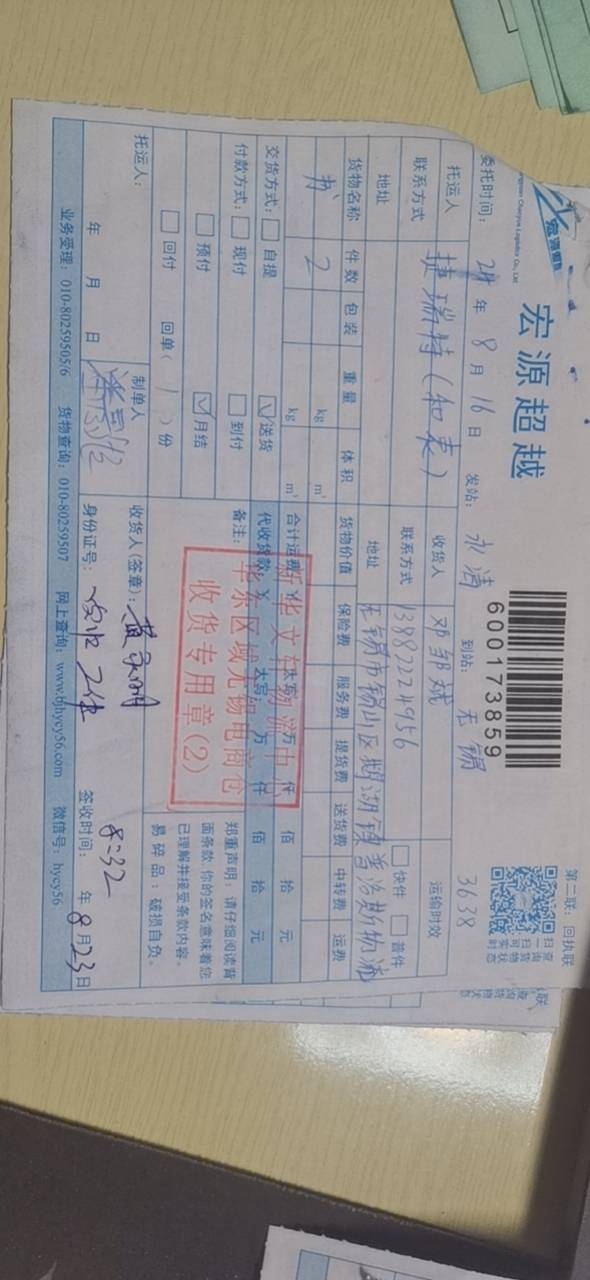 宏源超越
600173859
第二联：回执联
委托时间：24年8月16日 发站：永清 到站：无锡 3638
托运人 捷瑞特（知表） 收货人 邓邹斌 运输时效
联系方式 联系方式 13882224956 快件 普件
地址 地址 无锡市锡山区鹅湖镇普洛斯物流
货物名称 件数 包装 重量 体积 货物价值 保险费 服务费 提货费 送货费 中转费 运费
书 2 kg m³
kg m³ 合计运费 ¥ 大写： 万 仟 佰 拾 元
交货方式： 自提 送货 代收货款 ¥ 大写： 万 仟 佰 拾 元
付款方式： 现付 到付 备注：
预付 月结
回付 回单（1）份
新华文轩物流中心
华东区域无锡电商仓
收货专用章(2)
郑重声明：请仔细阅读背
面条款，你的签名意味着您
已理解并接受条款内容。
易碎品：破损自负。
托运人： 制单人 收货人(签章)： 8:32
年 月 日 身份证号： 签收时间： 年8月23日
业务受理：010-80259505/6 货物查询：010-80259507 网上查询：www.bjhycy56.com 微信号：hycy56